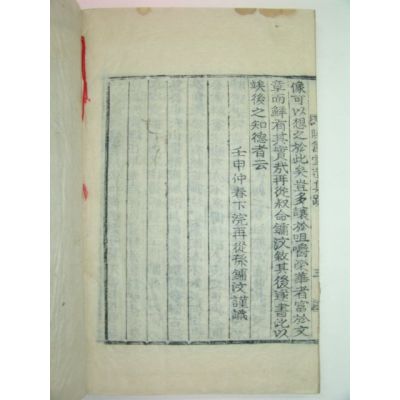 像可以想之於此矣豈多讓於咀嚼榮華者富於文
章而鮮有其實哉再從叔命鏽汶敘其後遂書此以
竢後之知德者云
壬申仲春下浣再從孫鏽汶謹識